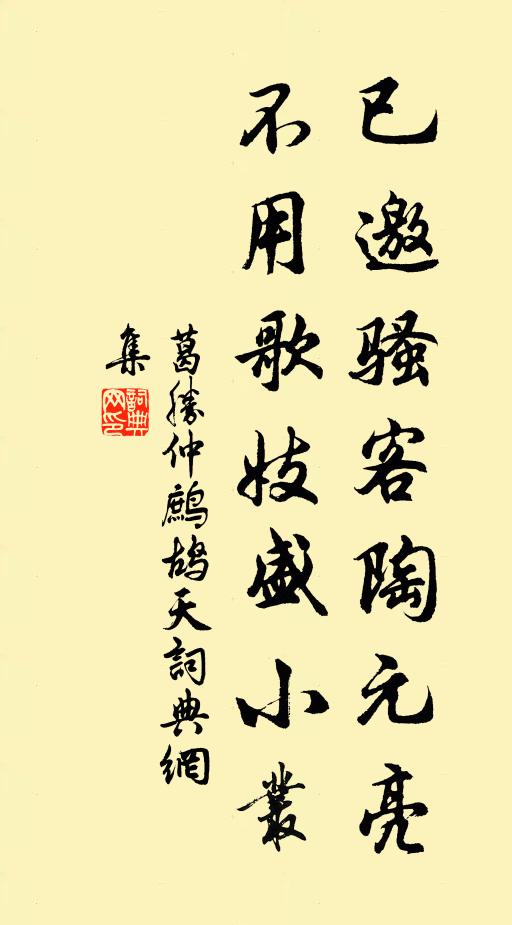 已邀騷客陶元亮
不用歌妓盛小叢
葛勝仲鷓鴣天詞典網
集
詞典
网印